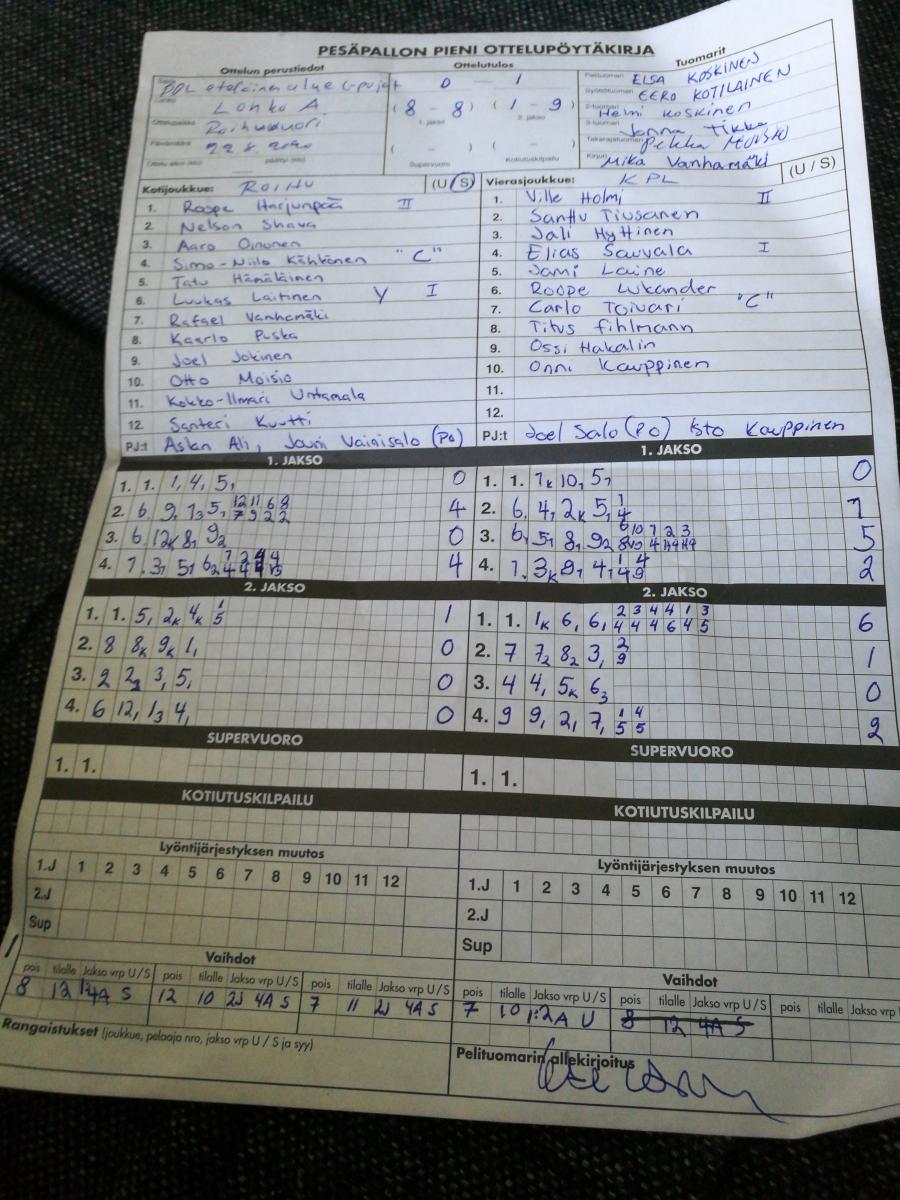 PESÄPALLON PIENI OTTELUPÖYTÄKIRJA
Ottelun perustiedot
Ottelutulos
Tuomarit
0 – 1
Pelituomari ELSA KOSKINEN
Lohko A
( 8 – 8 ) ( 1 – 9 )
EERO KOTILAINEN
1. jakso 2. jakso
2-tuomari Helmi Koskinen
Ottelupaikka Roihuvuori
3-tuomari Jonna Tikka
Takarajatuomari Pekka
Päivämäärä 22.8.
( – ) ( – )
Supervuoro Kotiutuskilpailu
Kirjuri Mika Vanhamäki
Kotijoukkue: ROIHU (U/S)
Vierasjoukkue: KPL (U / S)
1. Roope Harjunpää II
2. Nelson Shava
3. Aaro Oinonen
4. Simo-Niilo Kähkönen "C"
5. Tatu Hämäläinen
6. Luukas Laitinen Y I
7. Rafael Vanhamäki
8. Kaarlo Puska
9. Joel Jokinen
10. Otto Moisio
11. Kokko-Ilmari Untamala
12. Santeri Kuutti
PJ:t Aslan Ali, Jouni Vainisalo (PO)
1. Ville Holmi II
2. Santtu Tiusanen
3. Jali Hyttinen
4. Elias Sauvala I
5. Jami Laine
6. Roope Wikander
7. Carlo Toivari "C"
8. Titus Fihlmann
9. Ossi Hakalin
10. Onni Kauppinen
11.
12.
PJ:t Joel Salo (PO) Isto Kauppinen
1. JAKSO
1. 1. 1, 4, 5, 0
2. 6 9, 1 5, 4
3. 6 12K 8, 9 2 0
4. 7. 3, 5, 6 2 4
1. JAKSO
1. 1. 7K 10, 5, 0
2. 6, 4, 2K 5, 1
3. 6, 5, 8, 9 2 5
4. 1. 3K 9, 4, 2
2. JAKSO
1. 1. 5, 2K 4K 1 5 1
2. 8 8K 9K 1, 0
3. 2 2 3, 5, 0
4. 6 12, 1 3 4, 0
2. JAKSO
1. 1. 1K 6, 6, 2 3 4 4 1 3 6
4 4 4 6 4 5
2. 7 7 2 8 2 3, 2 9 1
3. 4 4, 5K 6 3 0
4. 9 9, 2, 7, 1 4 2
5 5
SUPERVUORO
1. 1.
SUPERVUORO
1. 1.
KOTIUTUSKILPAILU
KOTIUTUSKILPAILU
Lyöntijärjestyksen muutos
1.J 1 2 3 4 5 6 7 8 9 10 11 12
2.J
Sup
Lyöntijärjestyksen muutos
1.J 1 2 3 4 5 6 7 8 9 10 11 12
2.J
Sup
Vaihdot
pois tilalle Jakso vrp U / S pois tilalle Jakso vrp U / S pois tilalle Jakso vrp U / S
8 12 1J 4A S 12 10 2J 4A S 7 11 2J 4A S
Vaihdot
pois tilalle Jakso vrp U / S pois tilalle Jakso vrp U / S pois tilalle Jakso vrp
7 10 1:2A U 8 12 4A S
Rangaistukset (joukkue, pelaaja nro, jakso vrp U / S ja syy)
Pelituomarin allekirjoitus